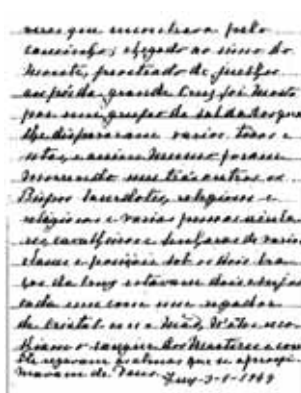 mas que encontrava pelo
caminho; chegado ao cimo do
monte, prostrado de juelhos
aos pés da grande Cruz foi morto
por um grupo de soldados que
lhe dispararam varios tiros e
setas, e assim mesmo foram
morrendo uns trás outros os
Bispos Sacerdotes, religiosos e
religiosas e varias pessoas
cavalheiros e senhoras de varias
classes e posições sob os dois bra
ços da Cruz estavam dois Anjos
cada um com um regador
de cristal em a mão, n'eles reco
lhiam o sangue dos Martires e com
ele regavam as almas que se aproxi
mavam de Deus.
Tuy-3-1-1944